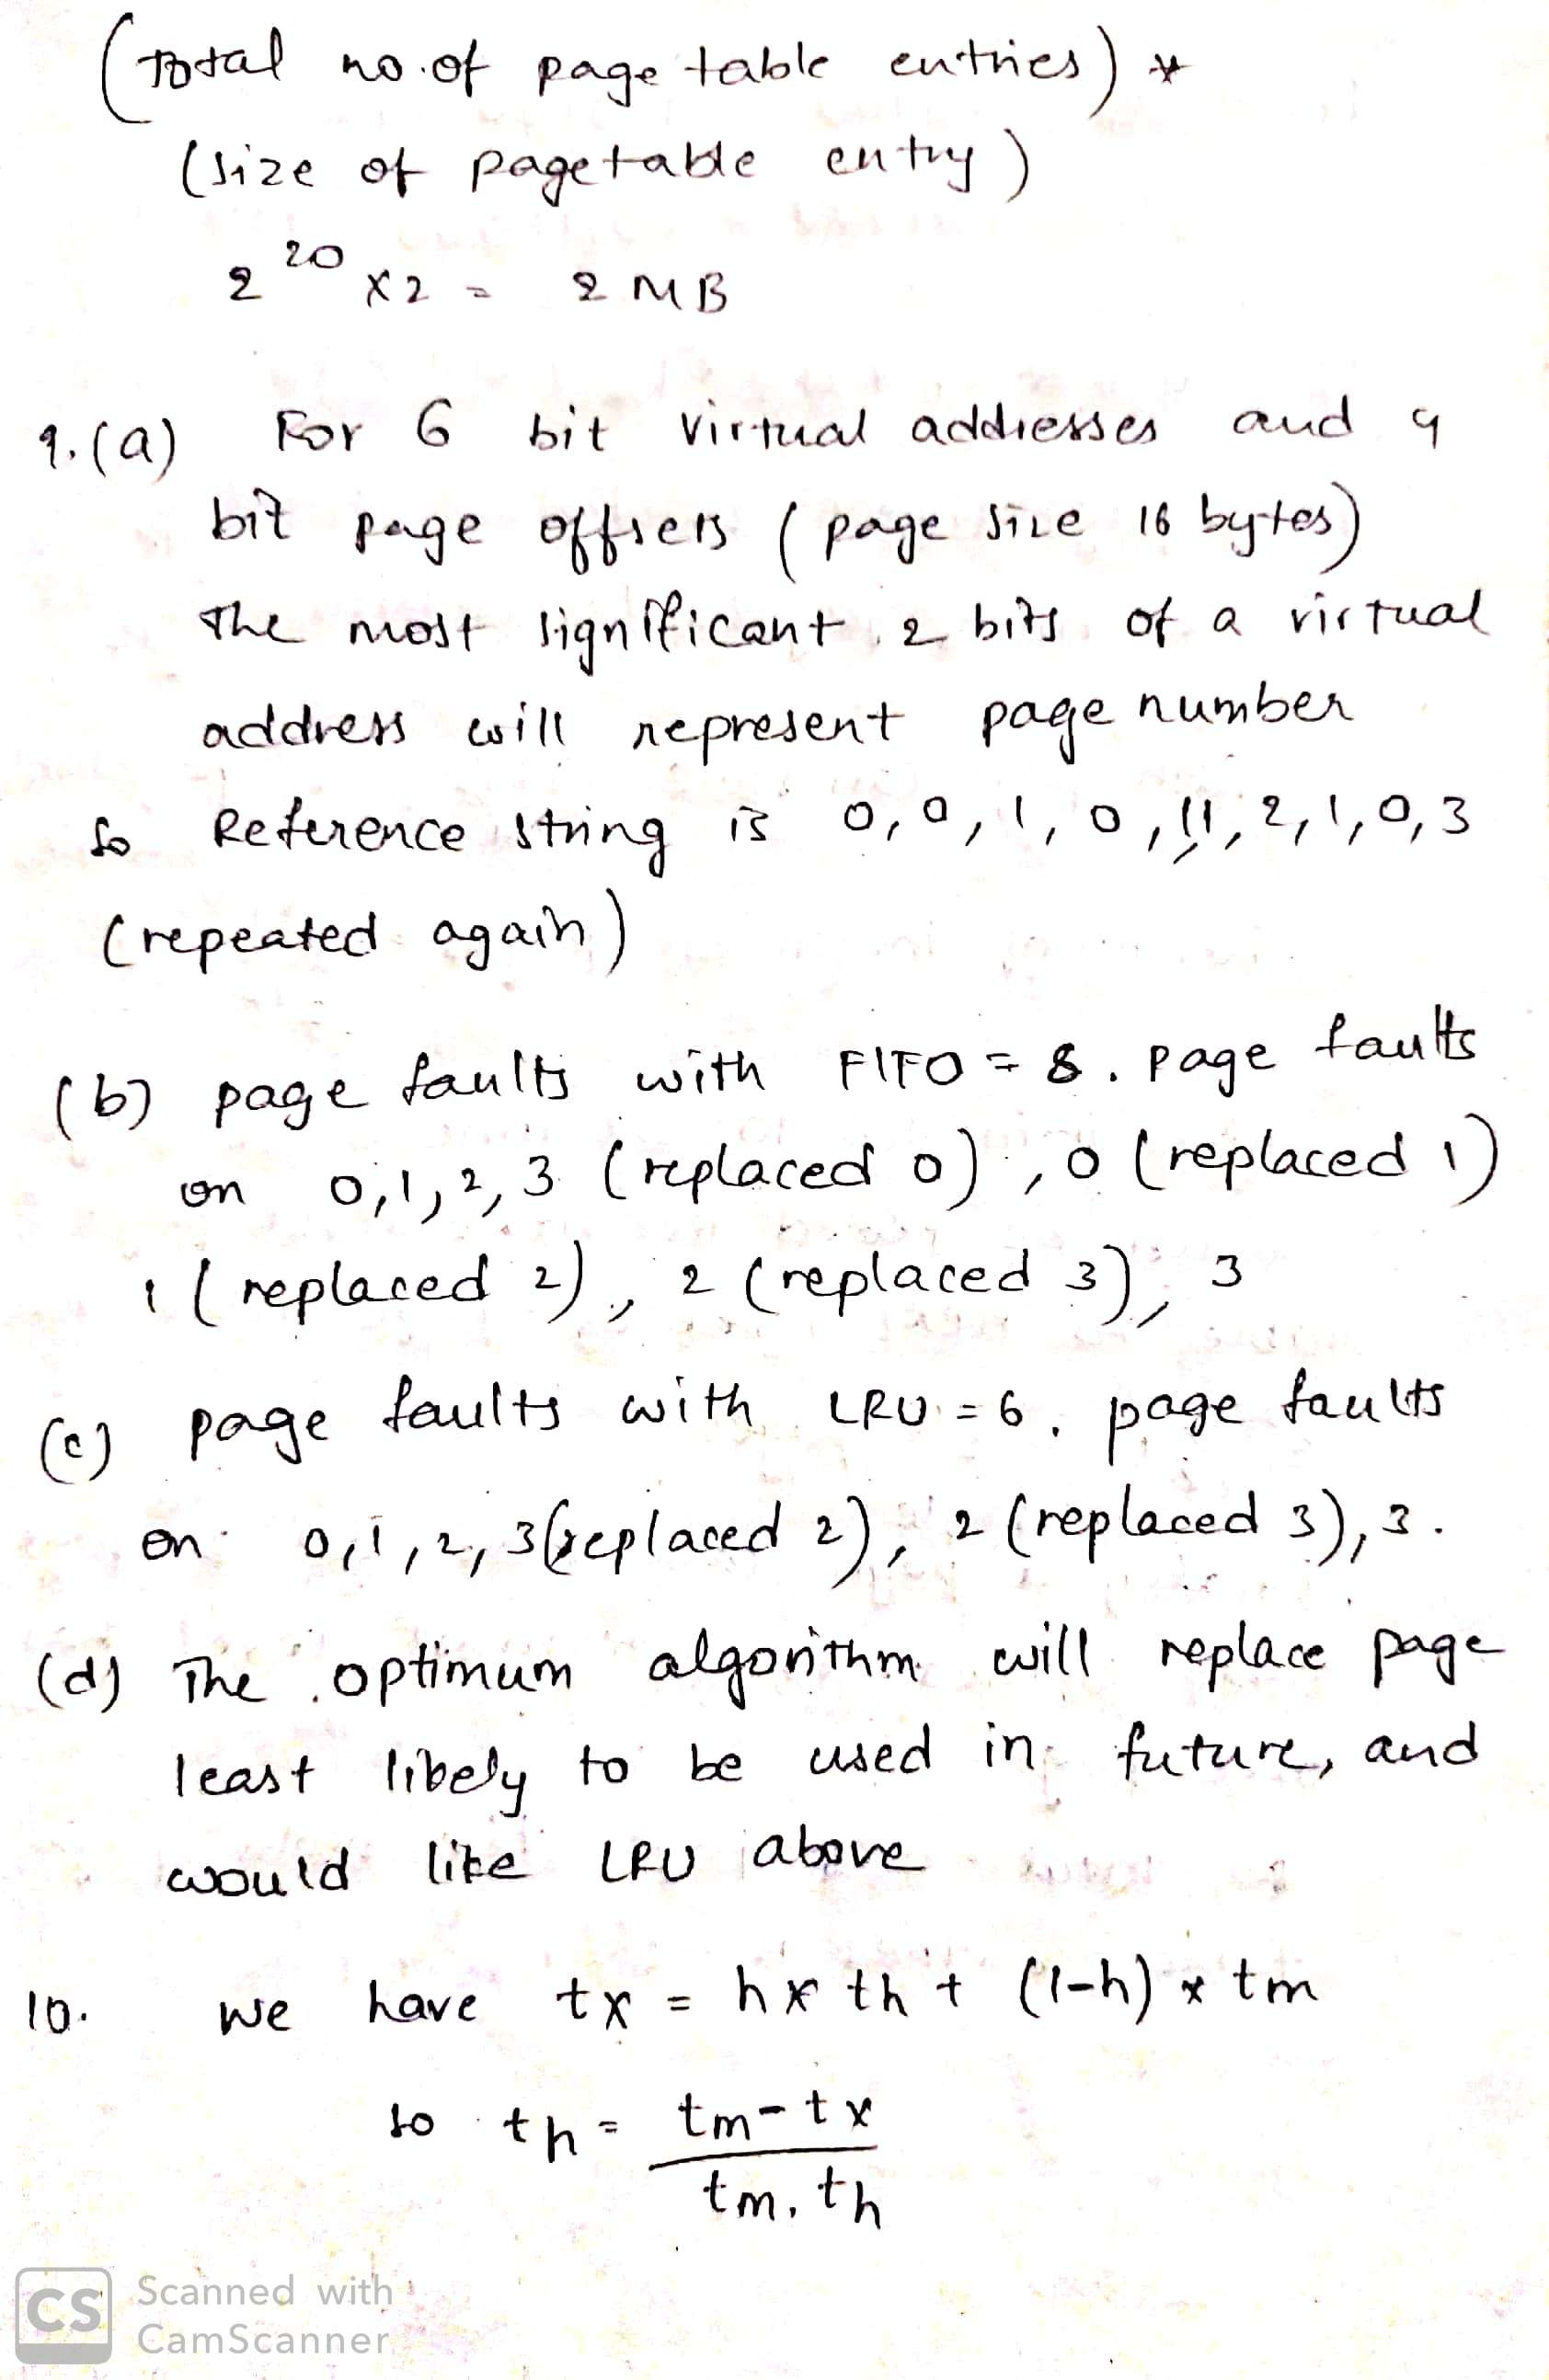 (Total no. of page table entries) *
(size of pagetable entry)
2^20 x 2 = 2 MB
9.(a) For 6 bit virtual addresses and 4
bit page offsets (page size 16 bytes)
The most significant 2 bits of a virtual
address will represent page number
So Reference string is 0,0,1,0,1,1,2,1,0,3
(repeated again)
(b) page faults with FIFO = 8. page faults
on 0,1,2,3 (replaced 0), 0 (replaced 1)
1 (replaced 2), 2 (replaced 3), 3
(c) page faults with LRU = 6. page faults
on 0,1,2,3 (replaced 2), 2 (replaced 3), 3.
(d) The optimum algorithm will replace page
least likely to be used in future, and
would like LRU above
10. We have tx = h * th + (1-h) * tm
so th = tm - tx
tm. th
CS Scanned with
CamScanner